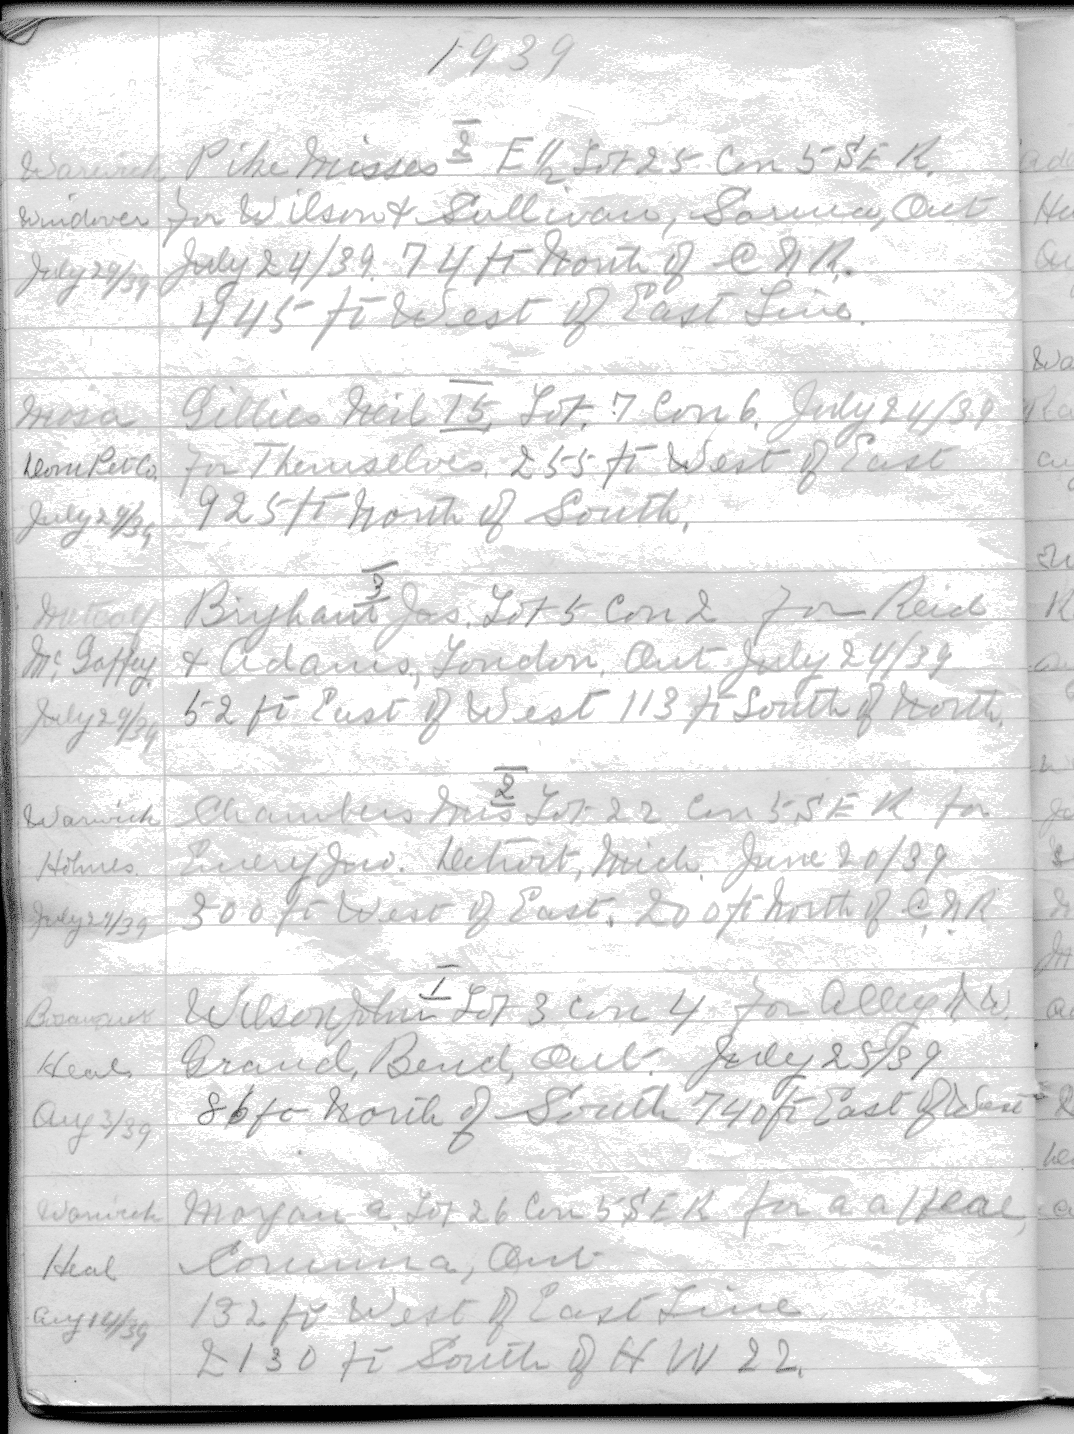 1939
Warwick Pike Misses 2 E 1/2 Lot 25 Con 5 S E R.
Windover for Wilson & Sullivan, Sarnia, Ont
July 29/39 July 24/39. 74 ft North of C N R.
445 ft West of East Line.
Mosa Gillies Neil 15 Lot. 7 Con 6. July 24/39
Dom Pet Co. for Themselves. 255 ft West of East
July 29/39 925 ft North of South.
Metcalf Brigham 3 Jas. Lot 5 Con 2 for Reid
Mc Gaffey & Adams, London, Ont July 24/39
July 29/39 52 ft East of West 113 ft South of North.
Warwick Chambers Mrs 2 Lot 22 Con 5 S E R for
Holmes. Emery Jno. Detroit, Mich. June 20/39
July 29/39 300 ft West of East. 200 ft North of C. N. R
Bosanquet Wilson John 1 Lot 3 Con 4 for Alley N. W.
Heal. Grand, Bend, Ont. July 25/39
Aug 3/39 86 ft North of South 740 ft East of West
Warwick Morgan A. Lot 26 Con 5 S E R for A A Heal,
Heal Corunna, Ont
Aug 14/39 132 ft West of East Line
2130 ft South of H W 22.